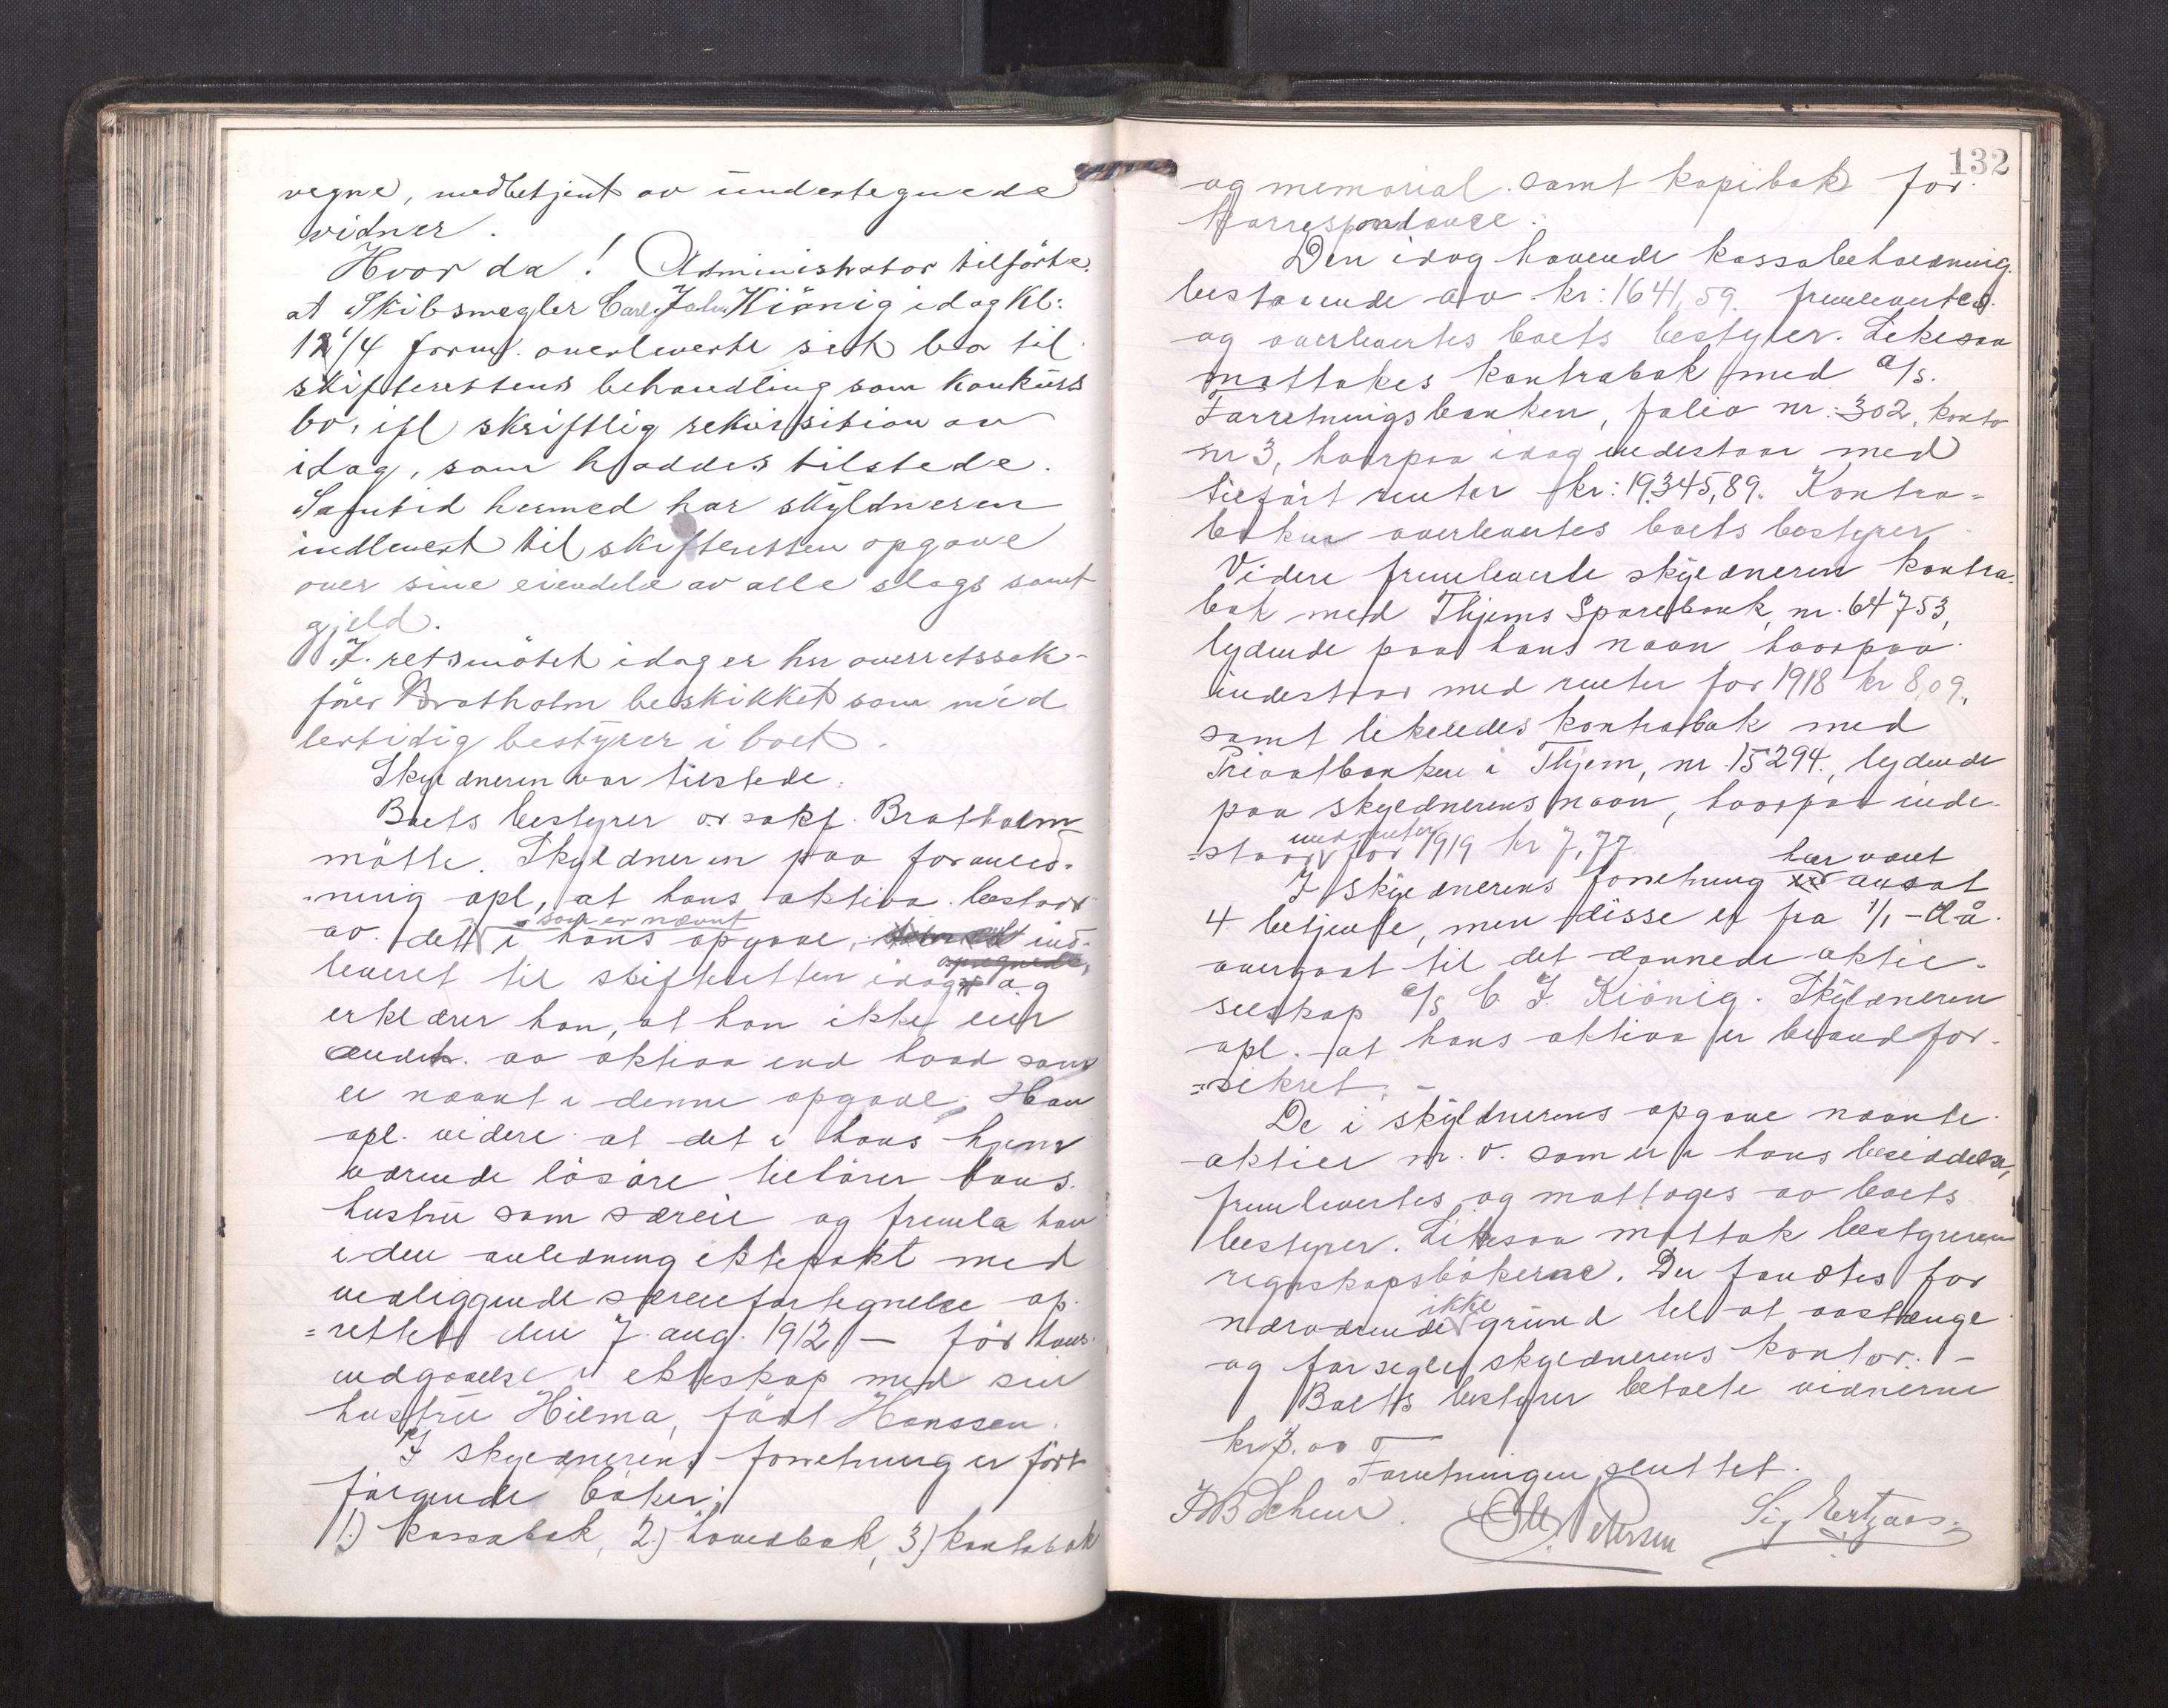 vegne, medbetjent av undertegnede
vidner.
Hvor da! Administrator tilförte
at Skibsmegler Carl John Kiönig idag Kl:
12 1/4 form. overleverte sit bo til
skifterettens behandling som Konkurs
bo, ifl skriftlig rekvisition av
idag, som haddes tilstede.
Samtid hermed har skyldneren
indlevert til skifteretten opgave
over sine eiendele av alle slags samt
gjeld.
I retsmötet idag er hr overretssak-
förer Bratholm beskikket som mid
lertidig bestyrer i boet.
Skyldneren var tilstede.
Boets bestyrer o.r. sakf. Bratholm
mötte. Skyldneren paa foranled-
ning opl, at hans aktiva bestaar
av det i hans opgave, som er nævnt ind-
leveret til skifteretten idag og
erklærer han, at han ikke eier
andet av aktiva end hvad som
er nævnt i denne opgave. Han
opl. videre at det i hans hjem
værende lösöre tilhörer hans
hustru som særeie og fremla han
i den anledning ektepakt med
vedliggende særeiefortegnelse op-
rettet den 7 aug. 1912 – för hans
indgaaelse i ekteskap med sin
hustru Hilma, födt Hanssen.
I skyldnerens forretning er fört
fölgende böker:
1.) Kassabok, 2.) hovedbok, 3.) kontobok
132
og memorial samt kopibok for
korrespondance.
Den idag havende kassabeholdning
bestaaende av kr: 1641,59 fremlevertes
og overlevertes boets bestyrer. Likesaa
mottokes kontrabok med a/s.
Forretningsbanken, folio nr: 302, konto
nr 3, hvorpaa idag indestaar med
tilfört renter kr: 19.345,89. Kontra-
boken overlevertes boets bestyrer
Videre fremleverte skyldneren kontra-
bok med Thjems Sparebank, nr. 64753,
lydende paa hans navn hvorpaa
indestaar med renter for 1918 kr 8,09,
samt likeledes kontrabok med
Privatbanken i Thjem, nr. 15294, lydende
paa skyldnerens navn, hvorpaa inde-
staar med renter for 1919 kr 7,77
I skyldnerens forretning har været ansat
4 betjente, men disse er fra 1/1 – d.å.
overgaat til det dannede aktie-
selskap a/s C. J. Kiönig. Skyldneren
opl. at hans aktiva er brandfor-
sikret. –
De i skyldnerens opgave nævnte
aktier m. v. som er i hans besiddelse,
fremlevertes og mottoges av boets
bestyrer. Likesaa mottok bestyreren
regnskapsbökerne. Der fandtes for
nærværende ikke grund til at avstænge
og forsegle skyldnerens kontor. –
Boets bestyrer betalte vidnerne
kr 3.00
Forretningen sluttet.
Petersen